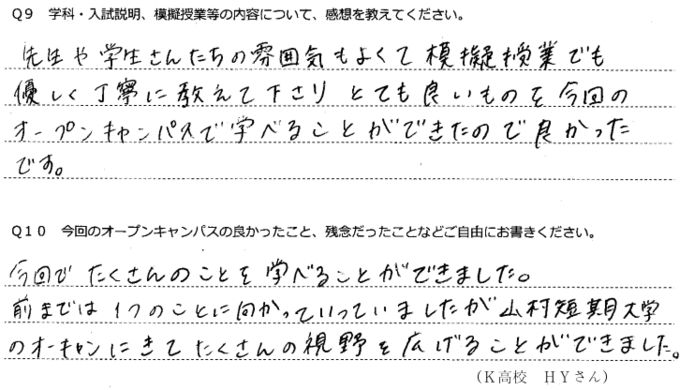 Q9 学科・入試説明、模擬授業等の内容について、感想を教えてください。
先生や学生さんたちの雰囲気もよくて模擬授業でも
優しく丁寧に教えて下さり とても良いものを今回の
オープンキャンパスで学べることができたので良かった
です。
Q10 今回のオープンキャンパスの良かったこと、残念だったことなどご自由にお書きください。
今回でたくさんのことを学べることができました。
前までは1つのことに向かっていっていましたが山村短期大学
のオーキャンにきてたくさんの視野を広げることができました。
(K高校 HYさん)